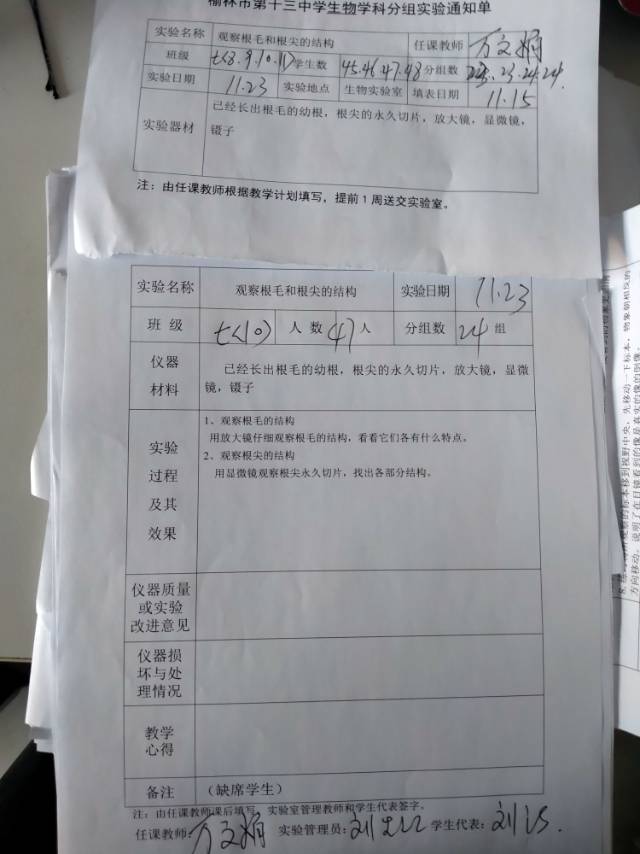 榆林市第十三中学生物学科分组实验通知单
实验名称 观察根毛和根尖的结构 任课教师 万文娟
班级 七(8.9.10.11) 学生数 45.46.47.48 分组数 23.24.24
实验日期 11.23 实验地点 生物实验室 填表日期 11.15
实验器材 已经长出根毛的幼根，根尖的永久切片，放大镜，显微镜，
镊子
注：由任课教师根据教学计划填写，提前1周送交实验室。
实验名称 观察根毛和根尖的结构 实验日期 11.23
班 级 七(10) 人 数 47 人 分组数 24 组
仪器
材料
已经长出根毛的幼根，根尖的永久切片，放大镜，显微
镜，镊子
实验
过程
及其
效果
1、观察根毛的结构
用放大镜仔细观察根毛的结构，看看它们各有什么特点。
2、观察根尖的结构
用显微镜观察根尖永久切片，找出各部分结构。
仪器质量
或实验
改进意见
仪器损
坏与处
理情况
教学
心得
备注 （缺席学生）
注：由任课教师课后填写，实验室管理教师和学生代表签字。
任课教师 万文娟 实验管理员：刘 学生代表：刘